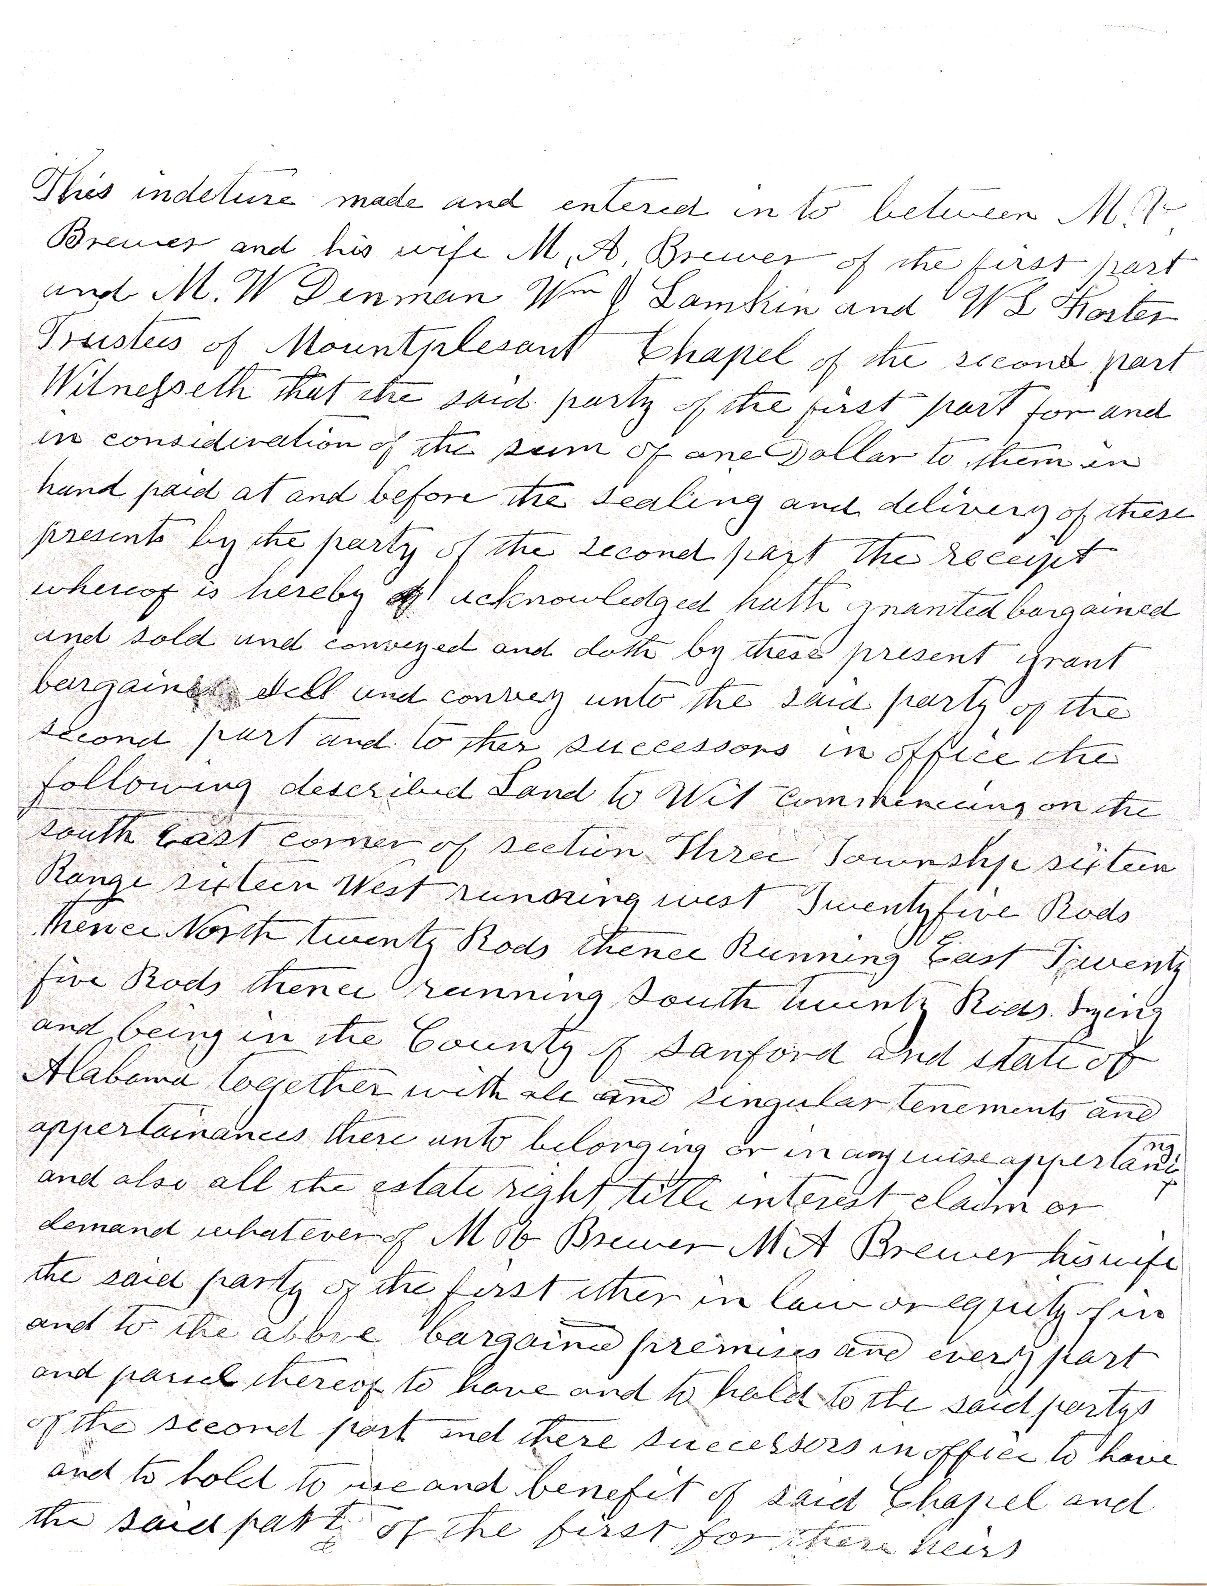 This indeture made and entered in to between M. V.
Brewer and his wife M. A. Brewer of the first part
and M. W Denman Wm J Lamkin and W L Foster
Trustees of Mountplesant Chapel of the second part
Witnesseth that the said party of the first part for and
in consideration of the sum of one Dollar to them in
hand paid at and before the sealing and delivery of these
presents by the party of the second part the receipt
whereof is hereby acknowledged hath granted bargained
and sold and conveyed and doth by these present grant
bargain sell and convey unto the said party of the
second part and to ther successors in office the
following described Land to Wit commencing on the
south East corner of section Three Township sixteen
Range sixteen West running west Twentyfive Rods
thence North twenty Rods thence Running East Twenty
five Rods thence running South twenty Rods Lying
and being in the County of Sanford and state of
Alabama together with all and singular tenements and
appertainances there unto belonging or in any wise appertaning
and also all the estate right title interest claim or
demand whatever of M V Brewer M A Brewer his wife
the said party of the first ither in law or equity of in
and to the above bargained premises and every part
and parcel thereof to have and to hold to the said partys
of the second part and there successors in office to have
and to hold to use and benefit of said Chapel and
the said part of the first for there heirs